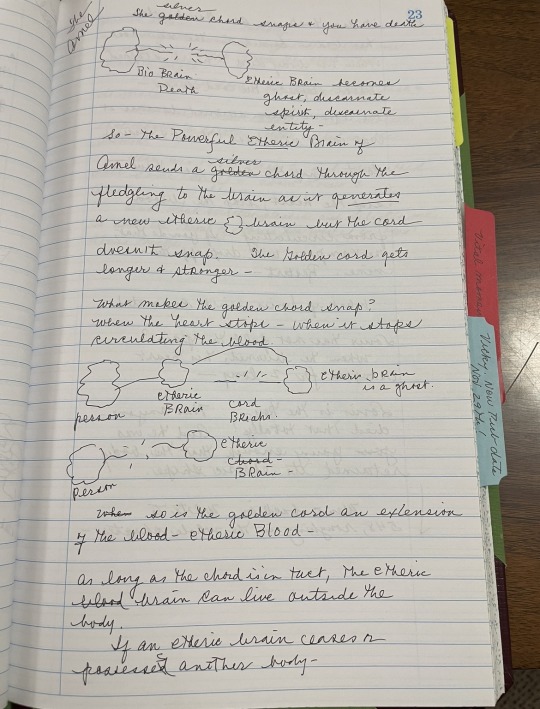 23
The
Amel
silver
The golden chord snaps & you have death
Bio Brain
Death
Etheric Brain becomes
ghost, discarnate
spirit, discarnate
entity -
So - the Powerful Etheric Brain of
silver
Amel sends a golden chord through the
fledgling to the brain as it generates
a new etheric {} brain but the cord
doesn't snap. The Golden cord gets
longer & stronger -
What makes the golden chord snap?
When the heart stops - when it stops
circulating the blood.
person
etheric
BRain
cord
BReaks.
Etheric brain
is a ghost.
Person
etheric
chord
BRain -
When so is the golden cord an extension
of the blood - etheric Blood -
As long as the chord is in tact, the etheric
blood brain can live outside the
body.
If an etheric brain ceases or
possesses another body -
Ticky Now
Nov 29th!